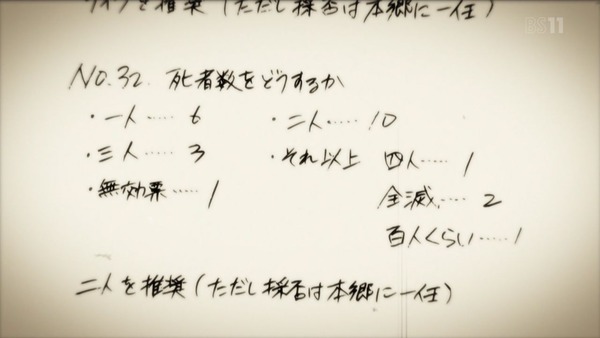 ナイフを推奨(ただし採否は本郷に一任)
BS11
NO.32. 死者数をどうするか
・一人…… 6 ・二人…… 10
・三人…… 3 ・それ以上 四人…… 1
・無効票…… 1 全滅…… 2
百人くらい…… 1
二人を推奨(ただし採否は本郷に一任)